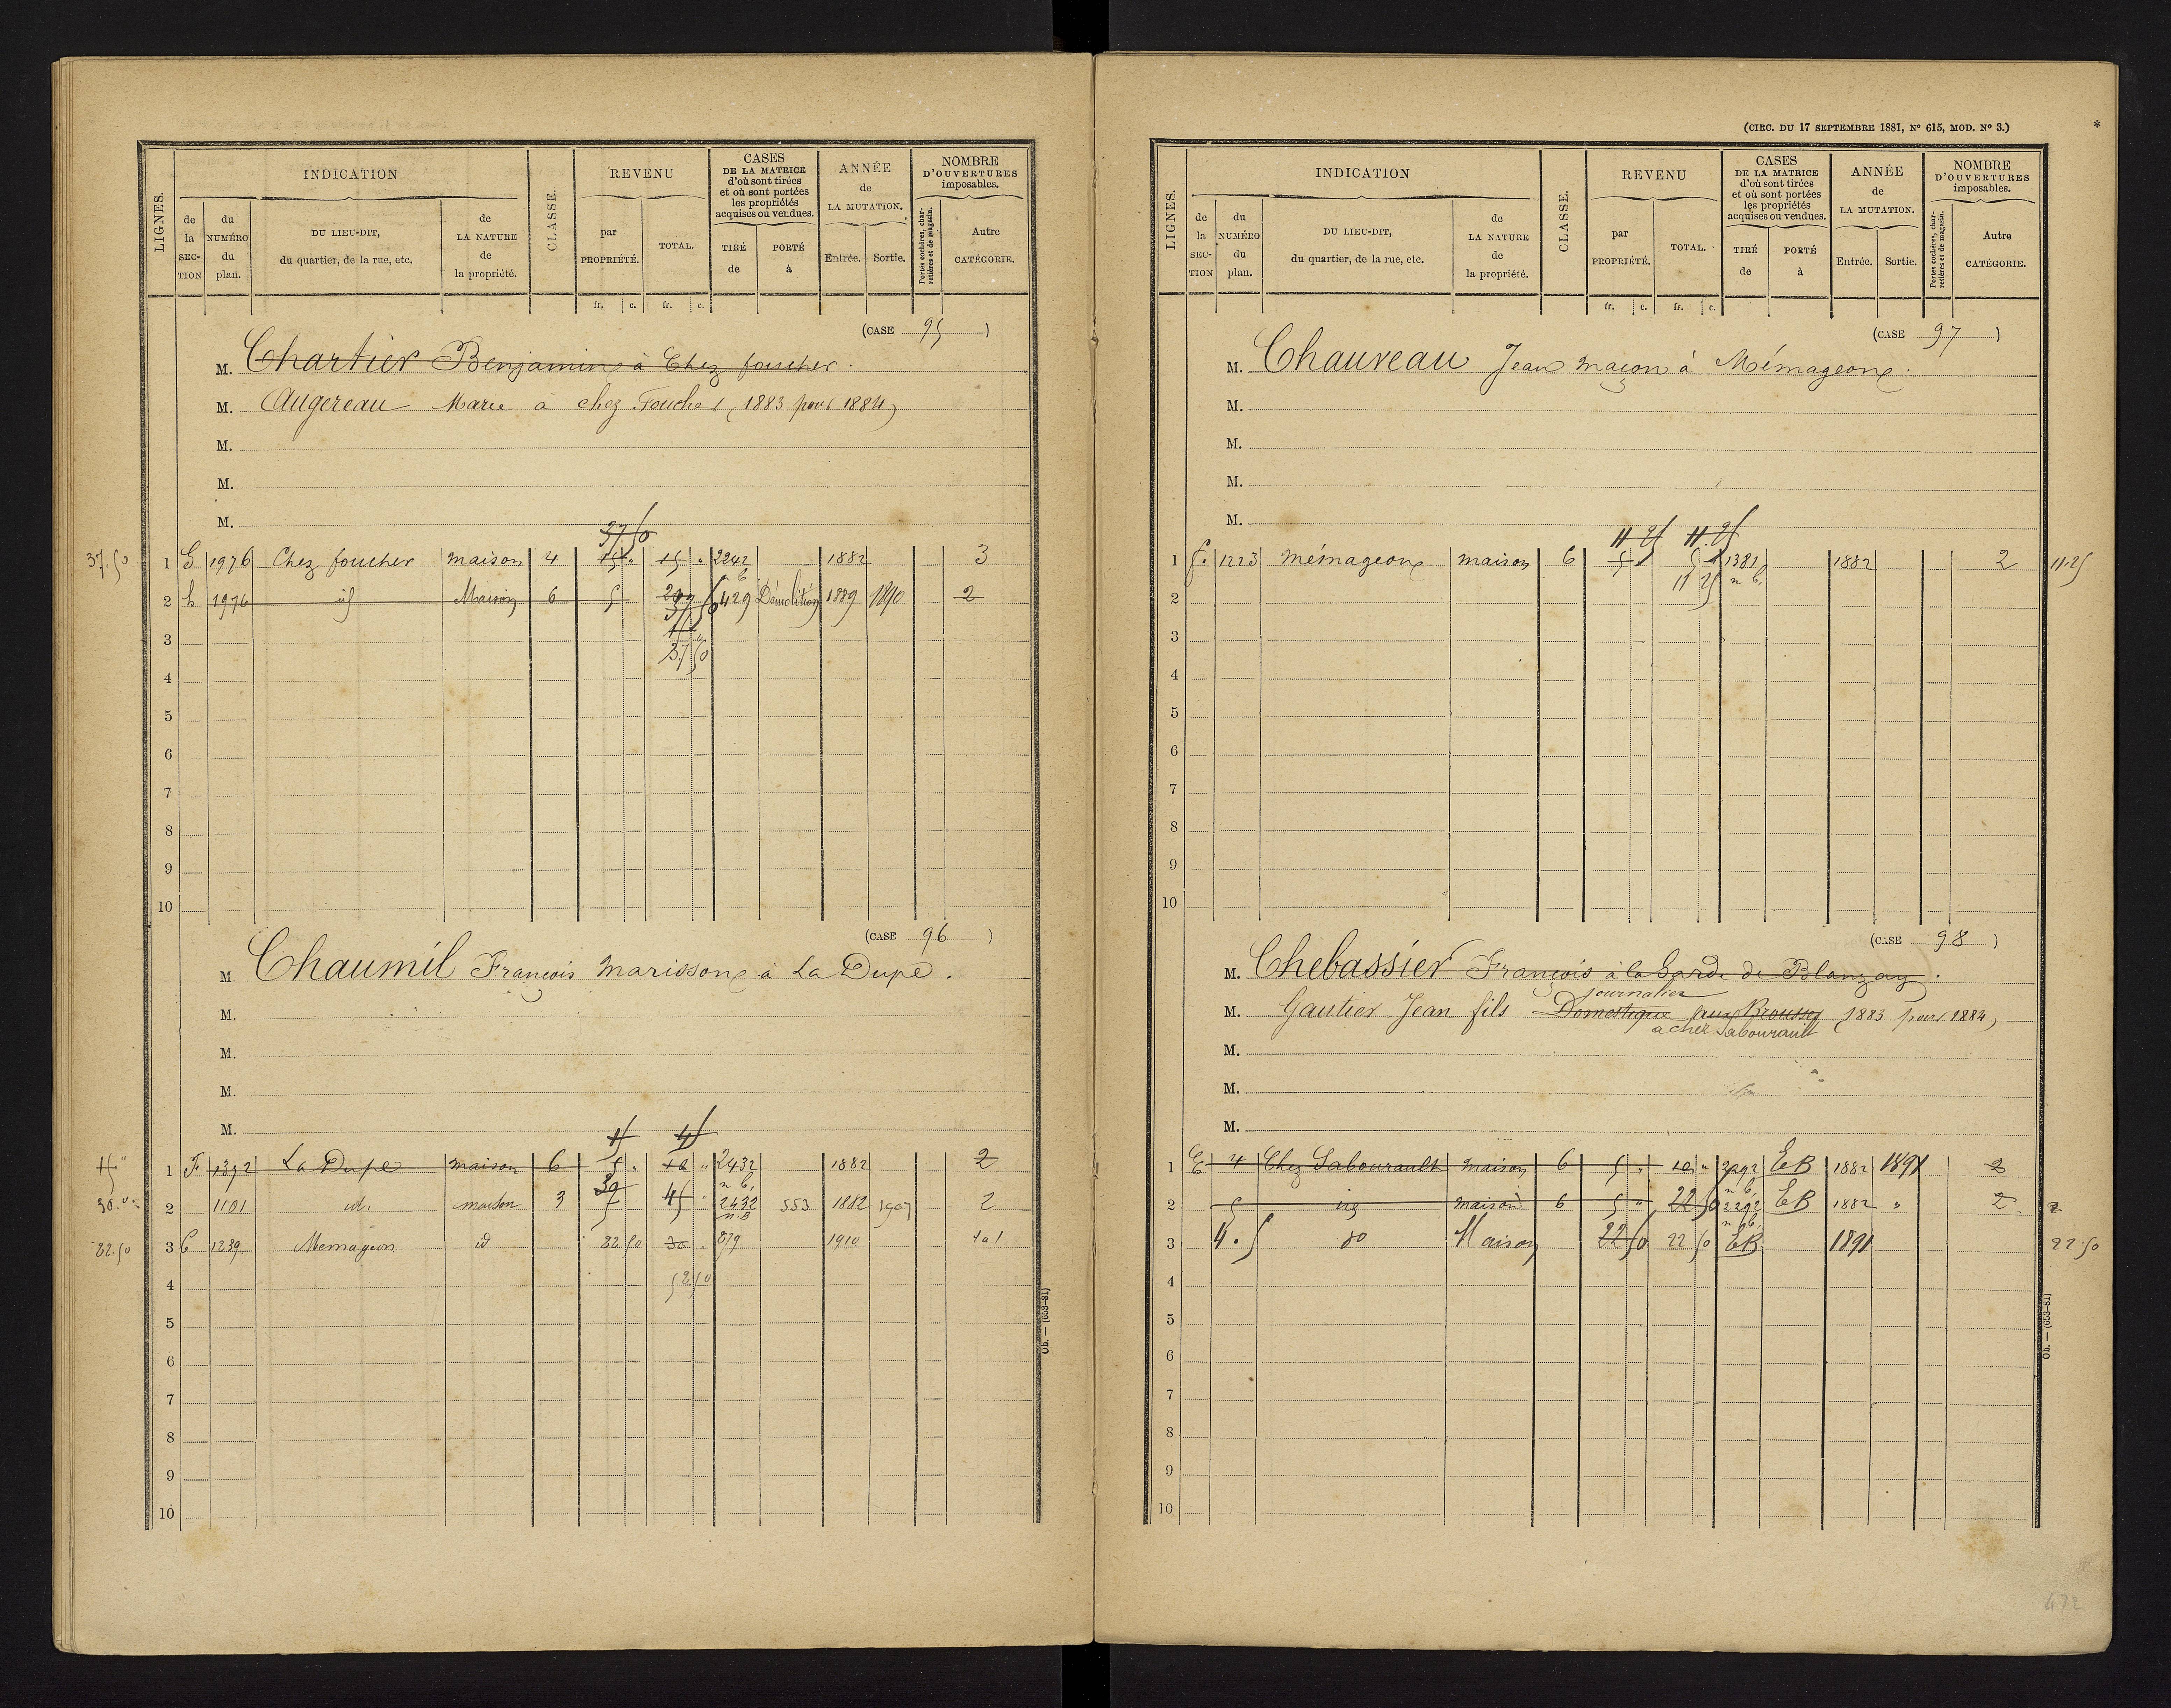 INDICATION
CLASSE.
REVENU
CASES DE LA MATRICE d'où sont tirées et où sont portées les propriétés acquises ou vendues.
ANNÉE de LA MUTATION.
NOMBRE D'OUVERTURES imposables.
LIGNES.
de la SECTION
du NUMÉRO du plan.
DU LIEU-DIT, du quartier, de la rue, etc.
de LA NATURE de la propriété.
par PROPRIÉTÉ.
TOTAL.
TIRÉ de
PORTÉ à
Entrée.
Sortie.
Portes cochères, charretières et de magasin.
Autre CATÉGORIE.
fr. c. fr. c.
(CASE 95)
M. Chartier Benjamin à Chez foucher.
M. Augereau Marie a chez Foucher (1883 pour 1884)
M.
M.
M.
37 50
37.50 1 G 1976 Chez foucher maison 4 15 " 15 " 2242 1882 3
n b,
2 h 1976 id Maison 6 5 429 Démolition 1889 1890 2
3
37 50
4
5
6
7
8
9
10
(CASE 96)
M. Chaumil François Marissone à La Dupe.
M.
M.
M.
M.
1 F. 1392 La Dupe maison 6 5 " 10 " 2432 1882 2
n b,
30. 2 1101 id. maison 3 45 2432 553 1882 1907 2
n.B
82.50 3 C 1239 Memageon id 82 50 30 879 1910 1 à 1
4
5
6
7
8
9
10
Ob. — (653-81)
(CIRC. DU 17 SEPTEMBRE 1881, N° 615, MOD. N° 3.)
*
INDICATION
CLASSE.
REVENU
CASES DE LA MATRICE d'où sont tirées et où sont portées les propriétés acquises ou vendues.
ANNÉE de LA MUTATION.
NOMBRE D'OUVERTURES imposables.
LIGNES.
de la SECTION
du NUMÉRO du plan.
DU LIEU-DIT, du quartier, de la rue, etc.
de LA NATURE de la propriété.
par PROPRIÉTÉ.
TOTAL.
TIRÉ de
PORTÉ à
Entrée.
Sortie.
Portes cochères, charretières et de magasin.
Autre CATÉGORIE.
fr. c. fr. c.
(CASE 97)
M. Chauveau Jean maçon à Mémageone.
M.
M.
M.
M.
11 25 11.25
1 f. 1223 mémageone maison 6 5 5 1381 1882 2 11.25
11 25 n b,
2
3
4
5
6
7
8
9
10
(CASE 98)
M. Chebassier François à la Garde de Blanzay.
journalier
M. Gautier Jean fils Domestique aux Brousses (1883 pour 1884)
a chez Sabourault
M.
M.
M.
1 E 4 Chez Sabourault maison 6 5 " 10 " 2292 EB 1882 1891 2
n b,
2 5 id maison 6 5 " 22 50 2292 EB 1882 " 2 2
n b,
3 4.5 do Maison 22 50 22 50 EB 1891 22.50
4
5
6
7
8
9
10
Ob. — (653-81)
472